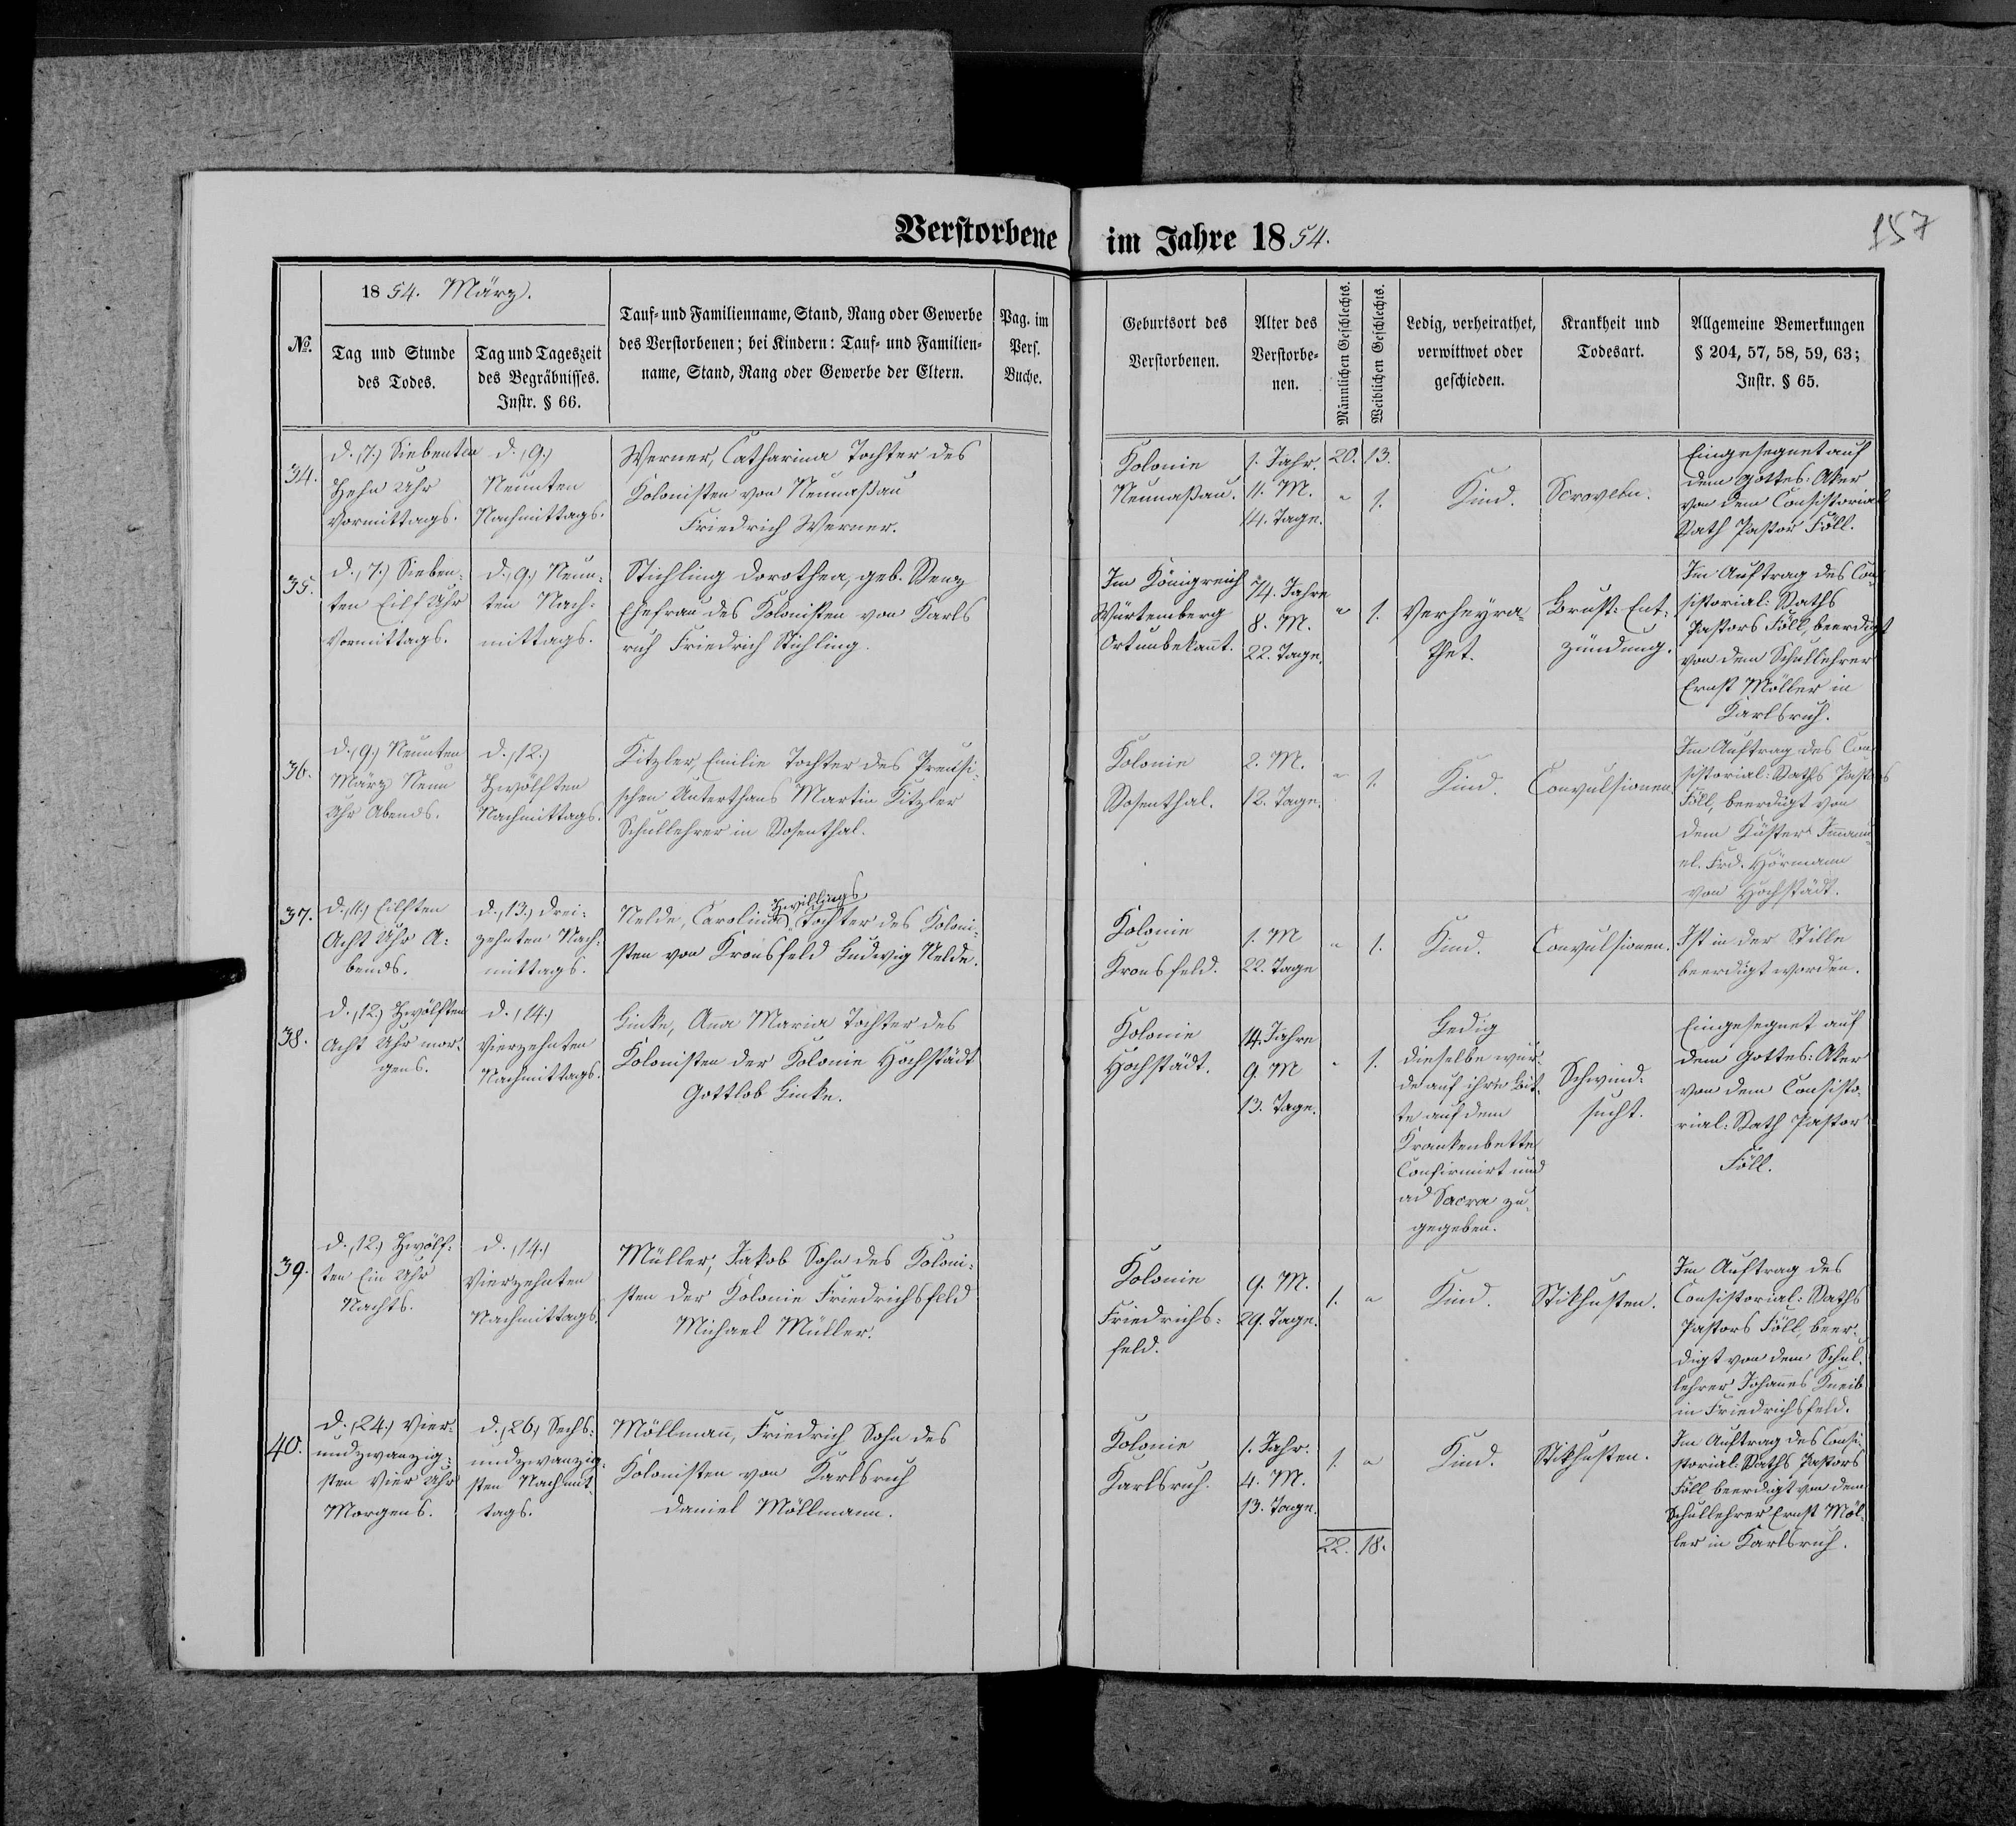 Verstorbene im Jahre 1854.
157
№.
1854. März.
Tag und Stunde
des Todes.
Tag und Tageszeit
des Begräbnisses.
Instr. § 66.
Tauf- und Familienname, Stand, Rang oder Gewerbe
des Verstorbenen; bei Kindern: Tauf- und Familien-
name, Stand, Rang oder Gewerbe der Eltern.
Pag. im
Pers.
Buche.
Geburtsort des
Verstorbenen.
Alter des
Verstorbe-
nen.
Männlichen Geschlechts.
Weiblichen Geschlechts.
Ledig, verheirathet,
verwittwet oder
geschieden.
Krankheit und
Todesart.
Allgemeine Bemerkungen
§ 204, 57, 58, 59, 63;
Instr. § 65.
34.
d. (7.) Siebenten
Zehn Uhr
Vormittags.
d. (9.)
Neunten
Nachmittags.
Werner, Catharina Tochter des
Kolonisten von Neunaßau
Friedrich Werner.
Kolonie
Neunaßau.
1. Jahr.
11. M.
14. Tage.
20. 13.
" 1.
Kind.
Scroveln.
Eingesegnet auf
dem Gottes: Aker
von dem Consistorial
Rath Pastor Föll.
35.
d. (7.) Sieben:
ten Eilf Uhr
Vormittags.
d. (9.) Neun:
ten Nach:
mittags.
Stichling Dorothea, geb. Renz
Ehefrau des Kolonisten von Karls
ruh Friedrich Stichling.
Im Königreich
Würtemberg
Ort unbekannt.
74. Jahre
8. M.
22. Tage.
" 1.
Verheyra-
thet.
Brust: Ent:
zündung.
Im Auftrag des Con
sistorial: Raths
Pastors Föll, beerdigt
von dem Schullehrer
Ernst Möller in
Karlsruh.
36.
d. (9.) Neunten
März Neun
Uhr Abends.
d. (12.)
Zwölften
Nachmittags.
Kitzler, Emilie Tochter des Preusi:
schen Unterthans Martin Kitzler
Schullehrer in Rosenthal.
Kolonie
Rosenthal.
2. M.
12. Tage.
" 1.
Kind.
Convulsionen
Im Auftrag des Con
sistorial: Raths Pastors
Föll, beerdigt von
dem Küster Immanu
el. Frd. Hörmann
von Hochstädt.
37.
d. (11.) Eilften
Acht Uhr A:
bends.
d. (13.) Drei:
zehnten Nach:
mittags.
Zwillings
Nelde, Carolina Tochter des Koloni:
sten von Kronsfeld Ludwig Nelde.
Kolonie
Kronsfeld.
1. M
22. Tage
" 1.
Kind.
Convulsionen.
Ist in der Stille
beerdigt worden.
38.
d. (12.) Zwölften
Acht Uhr mor:
gens.
d. (14.)
Vierzehnten
Nachmittags.
Linke, Anna Maria Tochter des
Kolonisten der Kolonie Hochstädt
Gottlob Linke.
Kolonie
Hochstädt.
14. Jahre
9. M
13. Tage.
" 1.
Ledig
dieselbe wur
de auf ihre Bit
te auf dem
Krankenbette
Confirmirt und
ad Sacra zu
gegeben.
Schwind:
sucht.
Eingesegnet auf
dem Gottes: Aker
von dem Consisto
rial: Rath Pastor
Föll.
39.
d. (12.) Zwölf:
ten Ein Uhr
Nachts.
d. (14.)
Vierzehnten
Nachmittags.
Müller, Jakob Sohn des Koloni:
sten der Kolonie Friedrichsfeld
Michael Müller.
Kolonie
Friedrichs:
feld.
9. M.
29. Tage.
1. "
Kind.
Stikhusten.
Im Auftrag des
Consistorial: Raths
Pastors Föll, beer:
digt von dem Schul
lehrer Johannes Kneib
in Friedrichsfeld.
40.
d. (24.) Vier:
undzwanzig:
sten Vier Uhr
Morgens.
d. (26.) Sechs:
undzwanzig:
sten Nachmit
tags.
Möllmann, Friedrich Sohn des
Kolonisten von Karlsruh
Daniel Möllmann.
Kolonie
Karlsruh.
1. Jahr.
4. M.
13. Tage.
1. "
Kind.
Stikhusten.
Im Auftrag des Consi:
storial: Raths Pastors
Föll beerdigt von dem
Schullehrer Ernst Möl
ler in Karlsruh.
22. 18.